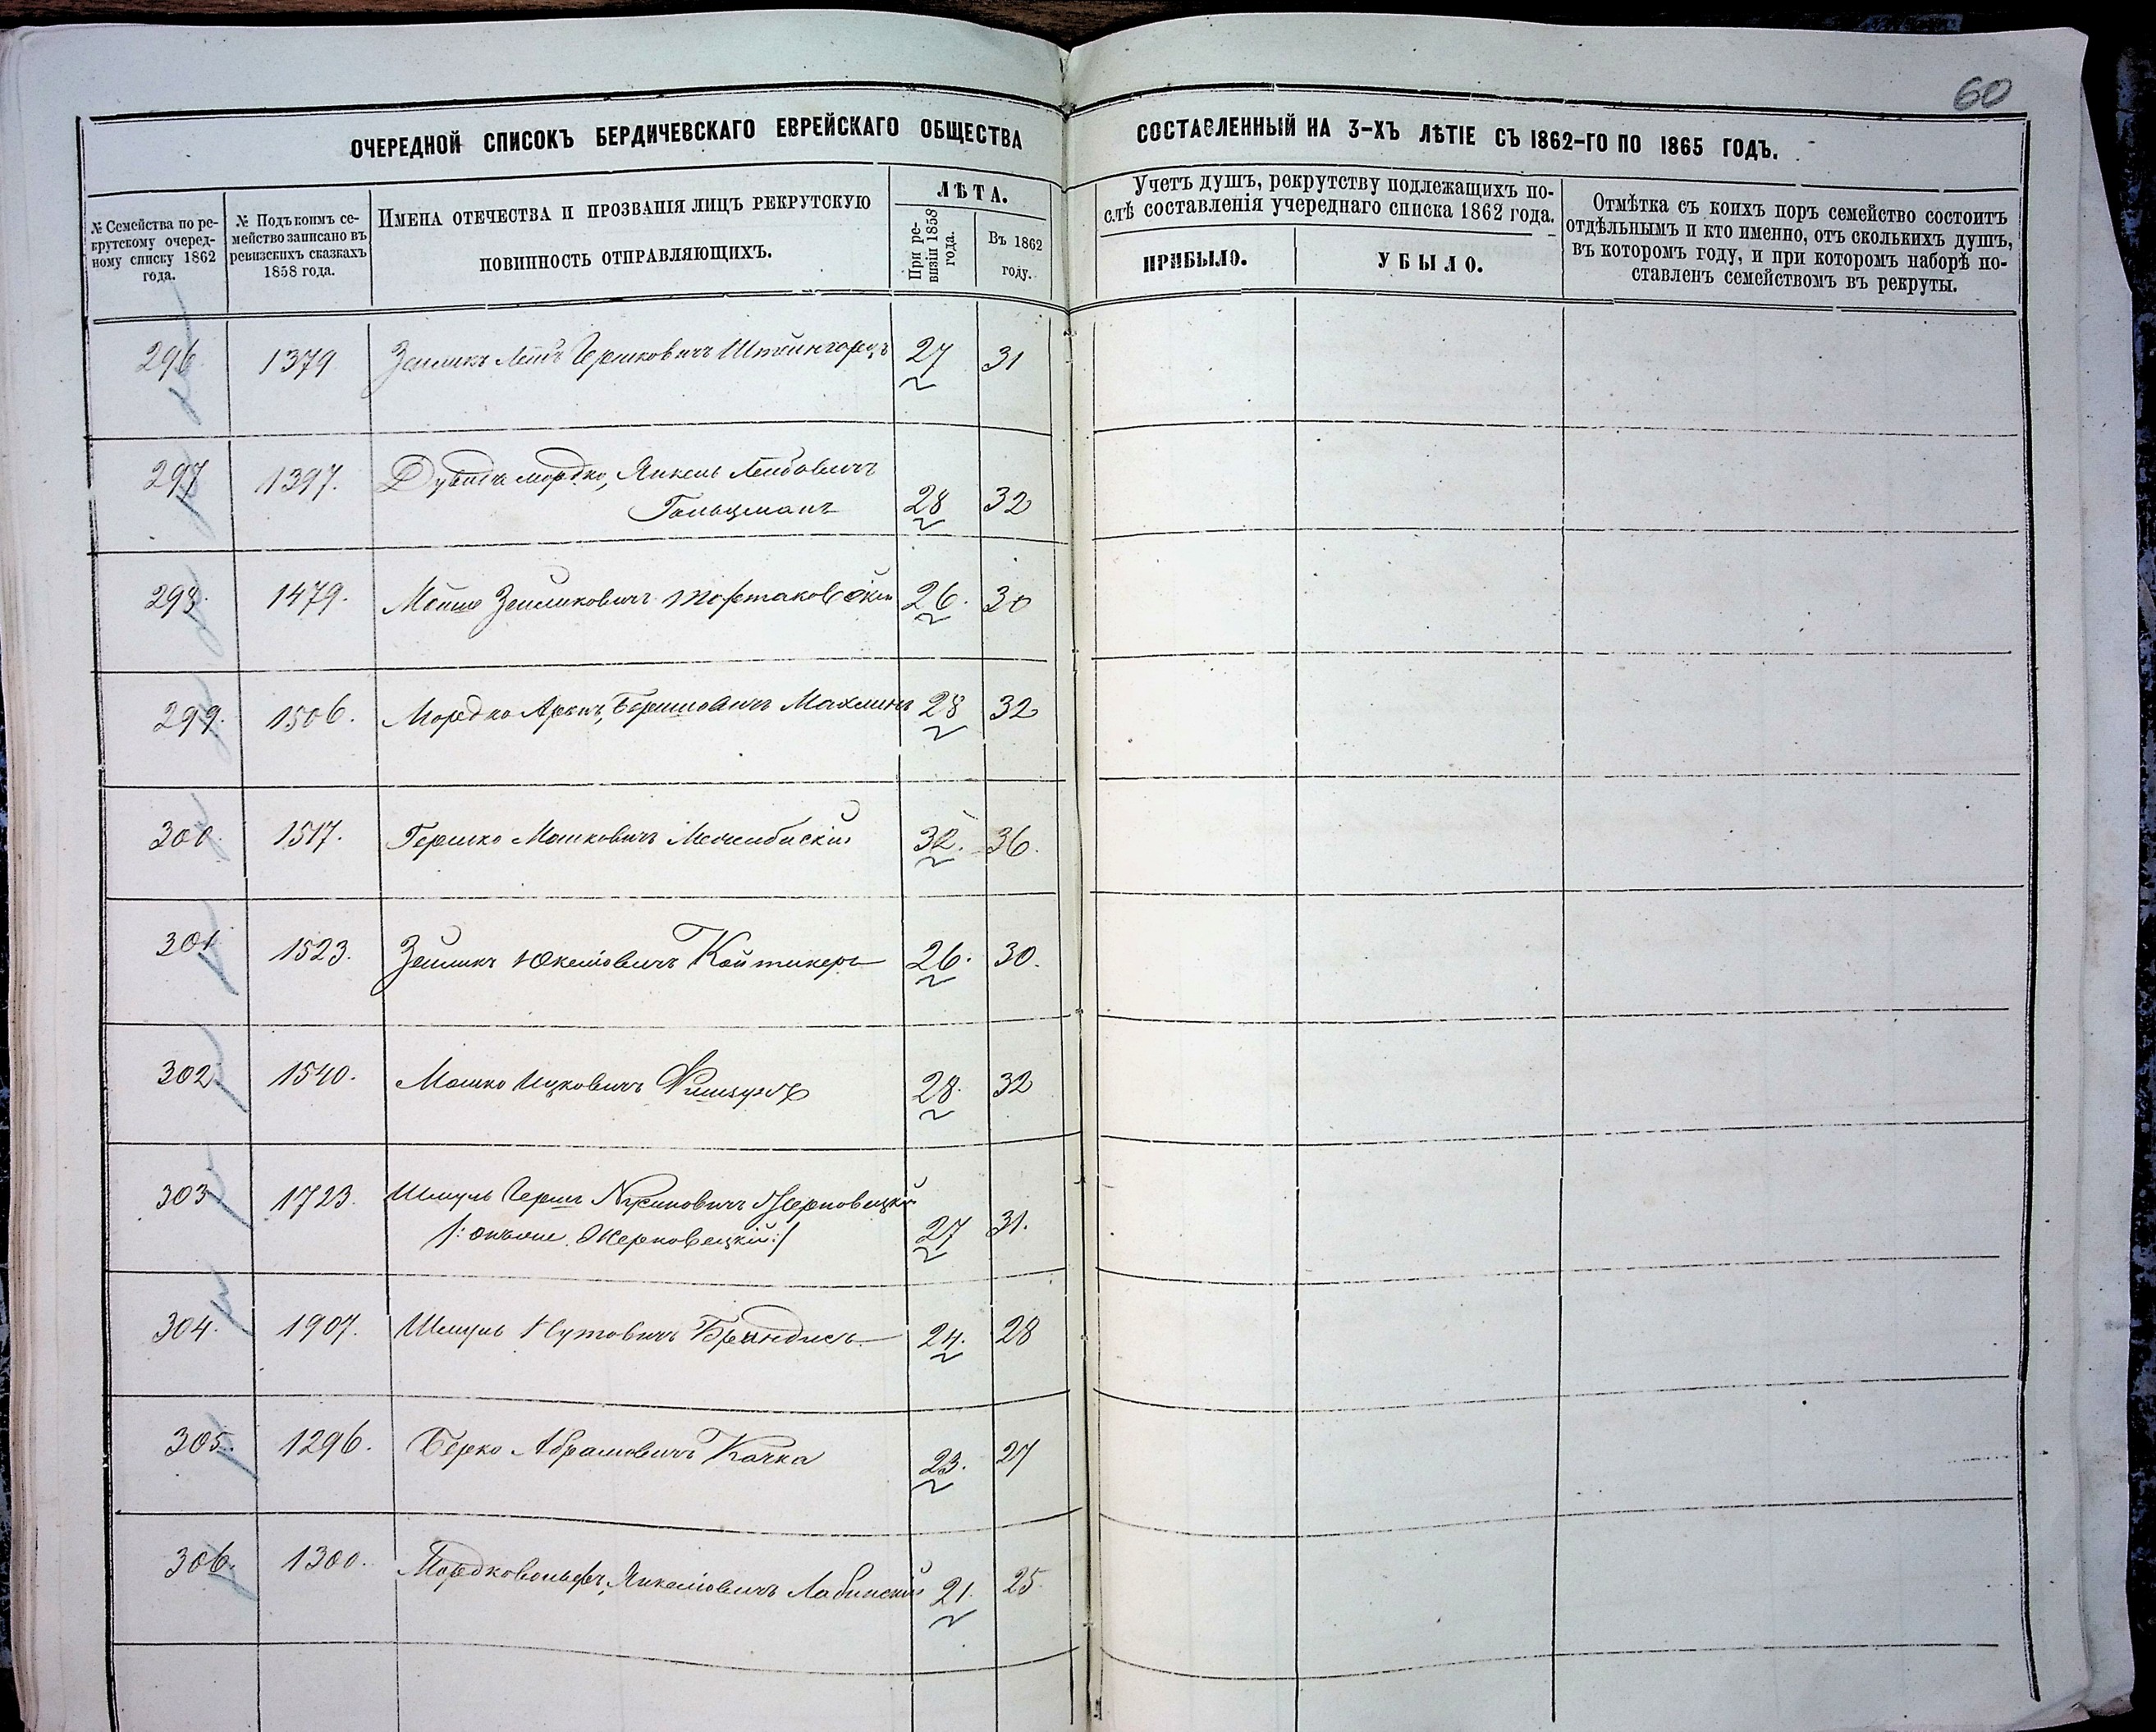 60
ОЧЕРЕДНОЙ СПИСОКЪ БЕРДИЧЕВСКАГО ЕВРЕЙСКАГО ОБЩЕСТВА
СОСТАВЛЕННЫЙ НА 3-ХЪ ЛѢТІЕ СЪ 1862-ГО ПО 1865 ГОДЪ.
№ Семейства по ре-
крутскому очеред-
ному списку 1862
года.
№ Подъ коимъ се-
мейство записано въ
ревизскихъ сказкахъ
1858 года.
ИМЕНА ОТЕЧЕСТВА И ПРОЗВАНІЯ ЛИЦЪ РЕКРУТСКУЮ
ПОВИННОСТЬ ОТПРАВЛЯЮЩИХЪ.
ЛѢТА.
При ре-
визіи 1858
года.
Въ 1862
году.
Учетъ душъ, рекрутству подлежащихъ по-
слѣ составленія учереднаго списка 1862 года.
ПРИБЫЛО.
УБЫЛО.
Отмѣтка съ коихъ поръ семейство состоитъ
отдѣльнымъ и кто именно, отъ сколькихъ душъ,
въ которомъ году, и при которомъ наборѣ по-
ставленъ семействомъ въ рекруты.
296 1379 Зейликъ Лейбъ Гершковичъ Штейнгарцъ 27 31
297 1397. Дувидъ Мордко, Янкель Лейбовичъ
Гольцманъ 28 32
298. 1479. Мойше Зейликовичъ Тартаковскій 26. 30
299. 1506. Мордко Аронъ, Берковичъ Махлинъ 28 32
300. 1517. Гершко Мошковичъ Межибискій 32. 36.
301. 1523. Зейликъ Юкелiовичъ Койтикеръ 26. 30.
302. 1540. Мошко Ицковичъ 28. 32
303 1723. Шмуль Гершъ Нусиновичъ Черновецкій
/: онъ же Жерновецкій :/ 27 31.
304. 1907. Шмуль Нутовичъ Брандисъ 24. 28
305. 1296. Берко Абрамовичъ Качка 23. 27
306. 1300. Мордковольфъ, Янкеліовичъ Лабинскій 21. 25.